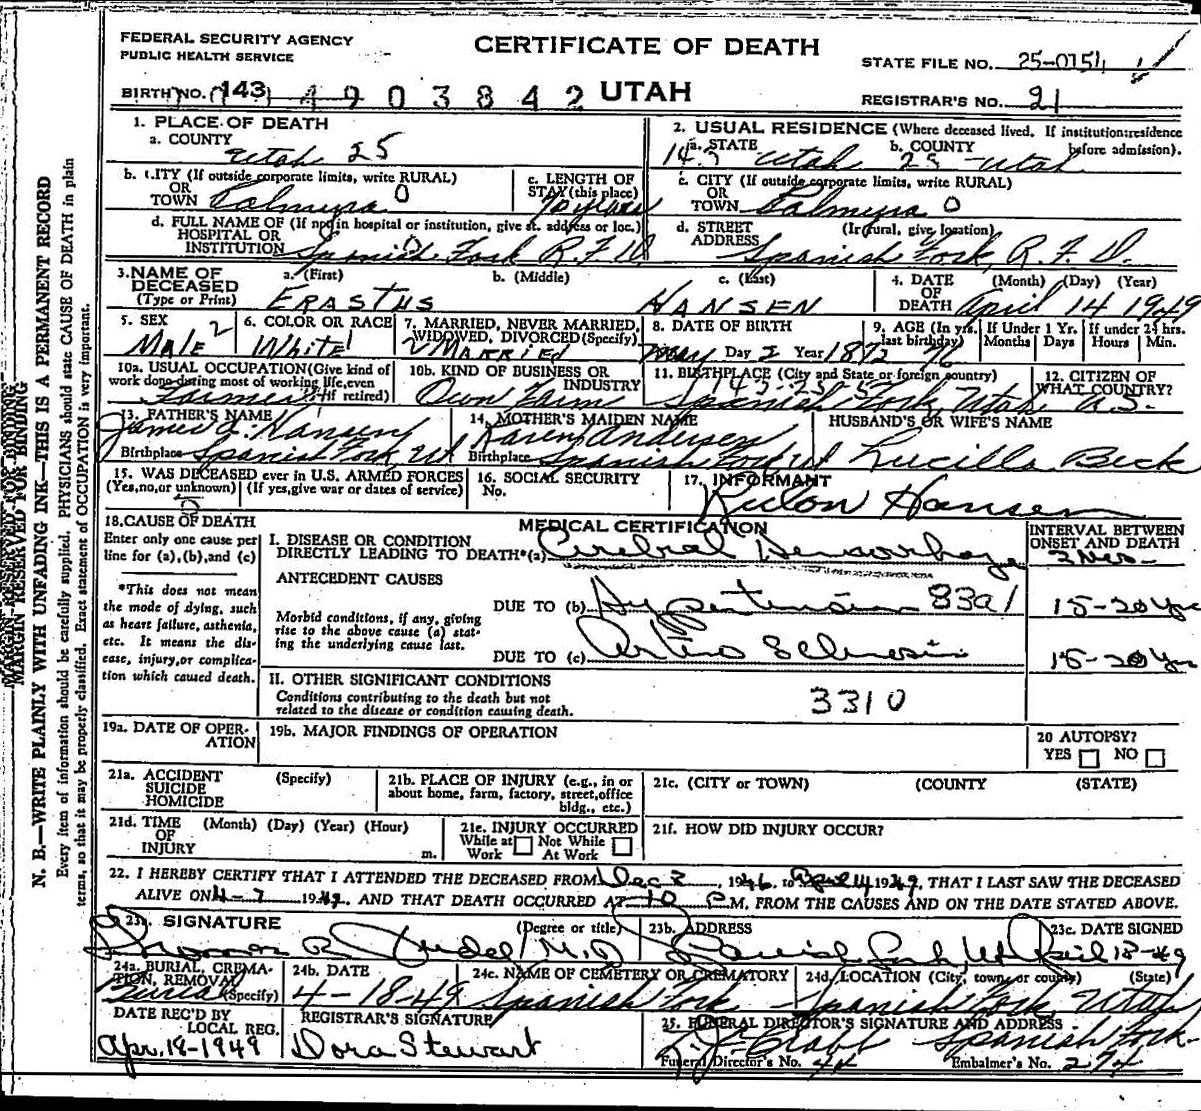 FEDERAL SECURITY AGENCY
PUBLIC HEALTH SERVICE
CERTIFICATE OF DEATH
STATE FILE NO. 25-0154
BIRTH NO. 143 4903842 UTAH
REGISTRAR'S NO. 21
1. PLACE OF DEATH
a. COUNTY
Utah 25
2. USUAL RESIDENCE (Where deceased lived. If institution: residence before admission).
a. STATE b. COUNTY
143 Utah 25 - Utah
b. CITY (If outside corporate limits, write RURAL)
OR
TOWN Palmyra 0
c. LENGTH OF
STAY (this place)
70 years
c. CITY (If outside corporate limits, write RURAL)
OR
TOWN Palmyra 0
d. FULL NAME OF (If not in hospital or institution, give st. address or loc.)
HOSPITAL OR
INSTITUTION Spanish Fork R.F.D.
d. STREET (If rural, give location)
ADDRESS Spanish Fork, R.F.D.
3. NAME OF
DECEASED
(Type or Print)
a. (First) b. (Middle) c. (Last)
ERASTUS HANSEN
4. DATE (Month) (Day) (Year)
OF
DEATH April 14 1949
5. SEX
Male 2
6. COLOR OR RACE
White 1
7. MARRIED, NEVER MARRIED,
WIDOWED, DIVORCED (Specify)
Married
8. DATE OF BIRTH
May Day 2 Year 1872
9. AGE (In yrs. last birthday)
76
If Under 1 Yr.
Months Days
If under 24 hrs.
Hours Min.
10a. USUAL OCCUPATION (Give kind of
work done during most of working life, even
if retired)
Farmer
10b. KIND OF BUSINESS OR
INDUSTRY
Own Farm
11. BIRTHPLACE (City and State or foreign country)
Spanish Fork, Utah
12. CITIZEN OF
WHAT COUNTRY?
U.S.
13. FATHER'S NAME
James Hansen
Birthplace Spanish Fork Ut
14. MOTHER'S MAIDEN NAME
Karen Andersen
Birthplace Spanish Fork Ut
HUSBAND'S OR WIFE'S NAME
Lucilla Beck
15. WAS DECEASED ever in U.S. ARMED FORCES
(Yes, no, or unknown) (If yes, give war or dates of service)
16. SOCIAL SECURITY
No.
17. INFORMANT
Rulon Hansen
18. CAUSE OF DEATH
Enter only one cause per
line for (a), (b), and (c)
*This does not mean
the mode of dying, such
as heart failure, asthenia,
etc. It means the dis-
ease, injury, or complica-
tion which caused death.
MEDICAL CERTIFICATION
INTERVAL BETWEEN
ONSET AND DEATH
I. DISEASE OR CONDITION
DIRECTLY LEADING TO DEATH*(a) Cerebral Hemorrhage
ANTECEDENT CAUSES
Morbid conditions, if any, giving
rise to the above cause (a) stat-
ing the underlying cause last.
DUE TO (b) Hypertension 83a1 15-20 yrs
DUE TO (c) Arterio Sclerosis 15-20 yrs
II. OTHER SIGNIFICANT CONDITIONS
Conditions contributing to the death but not
related to the disease or condition causing death.
3310
19a. DATE OF OPER-
ATION
19b. MAJOR FINDINGS OF OPERATION
20 AUTOPSY?
YES NO
21a. ACCIDENT (Specify)
SUICIDE
HOMICIDE
21b. PLACE OF INJURY (e.g., in or
about home, farm, factory, street, office
bldg., etc.)
21c. (CITY or TOWN) (COUNTY) (STATE)
21d. TIME (Month) (Day) (Year) (Hour)
OF
INJURY m.
21e. INJURY OCCURRED
While at Not While
Work At Work
21f. HOW DID INJURY OCCUR?
22. I HEREBY CERTIFY THAT I ATTENDED THE DECEASED FROM Dec 2, 1946, to April 14 1949, THAT I LAST SAW THE DECEASED
ALIVE ON 4-7 1949, AND THAT DEATH OCCURRED AT 10 P.M, FROM THE CAUSES AND ON THE DATE STATED ABOVE.
23a. SIGNATURE (Degree or title)
M.D
23b. ADDRESS
Spanish Fork, Ut
23c. DATE SIGNED
April 18-49
24a. BURIAL, CREMA-
TION, REMOVAL
(Specify)
Burial
24b. DATE
4-18-49
24c. NAME OF CEMETERY OR CREMATORY
Spanish Fork
24d. LOCATION (City, town, or county) (State)
Spanish Fork, Utah
DATE REC'D BY
LOCAL REG.
Apr. 18-1949
REGISTRAR'S SIGNATURE
Dora Stewart
25. FUNERAL DIRECTOR'S SIGNATURE AND ADDRESS
Spanish Fork
Funeral Director's No. 44 Embalmer's No. 274
MARGIN RESERVED FOR BINDING
N. B.—WRITE PLAINLY WITH UNFADING INK—THIS IS A PERMANENT RECORD
Every item of information should be carefully supplied. PHYSICIANS should state CAUSE OF DEATH in plain
terms, so that it may be properly classified. Exact statement of OCCUPATION is very important.